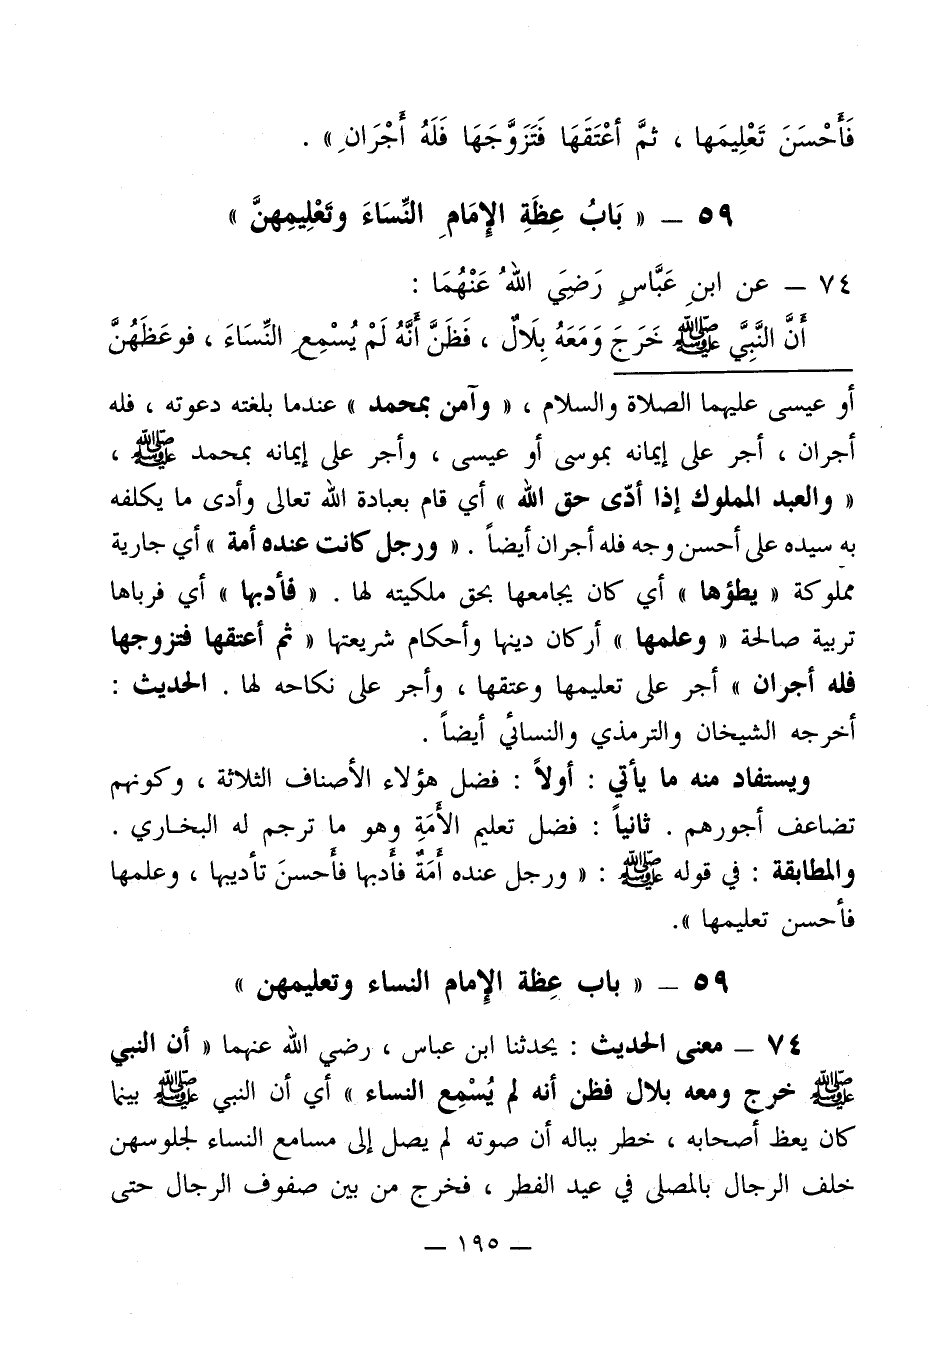 فَأَحْسَنَ تَعْلِيمَها ، ثمَّ أعْتَقَهَا فَتَزَوَّجَهَا فَلَهُ أَجْرَانِ » .
٥٩ – « بَابُ عِظَةِ الإِمَامِ النِّسَاءَ وتَعْلِيمِهنَّ »
٧٤ – عن ابنِ عَبَّاسٍ رَضِيَ اللهُ عَنْهُمَا :
أَنَّ النَّبِيَّ ﷺ خَرَجَ وَمَعَهُ بِلَالٌ ، فَظَنَّ أَنَّهُ لَمْ يُسْمِعِ النِّسَاءَ ، فوعَظَهُنَّ
أو عيسى عليهما الصلاة والسلام ، « وآمن بمحمد » عندما بلغته دعوته ، فله
أجران ، أجر على إيمانه بموسى أو عيسى ، وأجر على إيمانه بمحمد ﷺ ،
« والعبد المملوك إذا أدّى حق الله » أي قام بعبادة الله تعالى وأدى ما يكلفه
به سيده على أحسن وجه فله أجران أيضاً . « ورجل كانت عنده أمة » أي جارية
مملوكة « يطؤها » أي كان يجامعها بحق ملكيته لها . « فأدبها » أي فرباها
تربية صالحة « وعلمها » أركان دينها وأحكام شريعتها « ثم أعتقها فتزوجها
فله أجران » أجر على تعليمها وعتقها ، وأجر على نكاحه لها . الحديث :
أخرجه الشيخان والترمذي والنسائي أيضاً .
ويستفاد منه ما يأتي : أولاً : فضل هؤلاء الأصناف الثلاثة ، وكونهم
تضاعف أجورهم . ثانياً : فضل تعليم الأَمَةِ وهو ما ترجم له البخاري .
والمطابقة : في قوله ﷺ : « ورجل عنده أَمَةٌ فأدبها فأَحسنَ تأديبها ، وعلمها
فأحسن تعليمها ».
٥٩ – « باب عِظة الإِمام النساء وتعليمهن »
٧٤ – معنى الحديث : يحدثنا ابن عباس ، رضي الله عنهما « أن النبي
ﷺ خرج ومعه بلال فظن أنه لم يُسْمِع النساء » أي أن النبي ﷺ بينما
كان يعظ أصحابه ، خطر بباله أن صوته لم يصل إلى مسامع النساء لجلوسهن
خلف الرجال بالمصلى في عيد الفطر ، فخرج من بين صفوف الرجال حتى
– ١٩٥ –